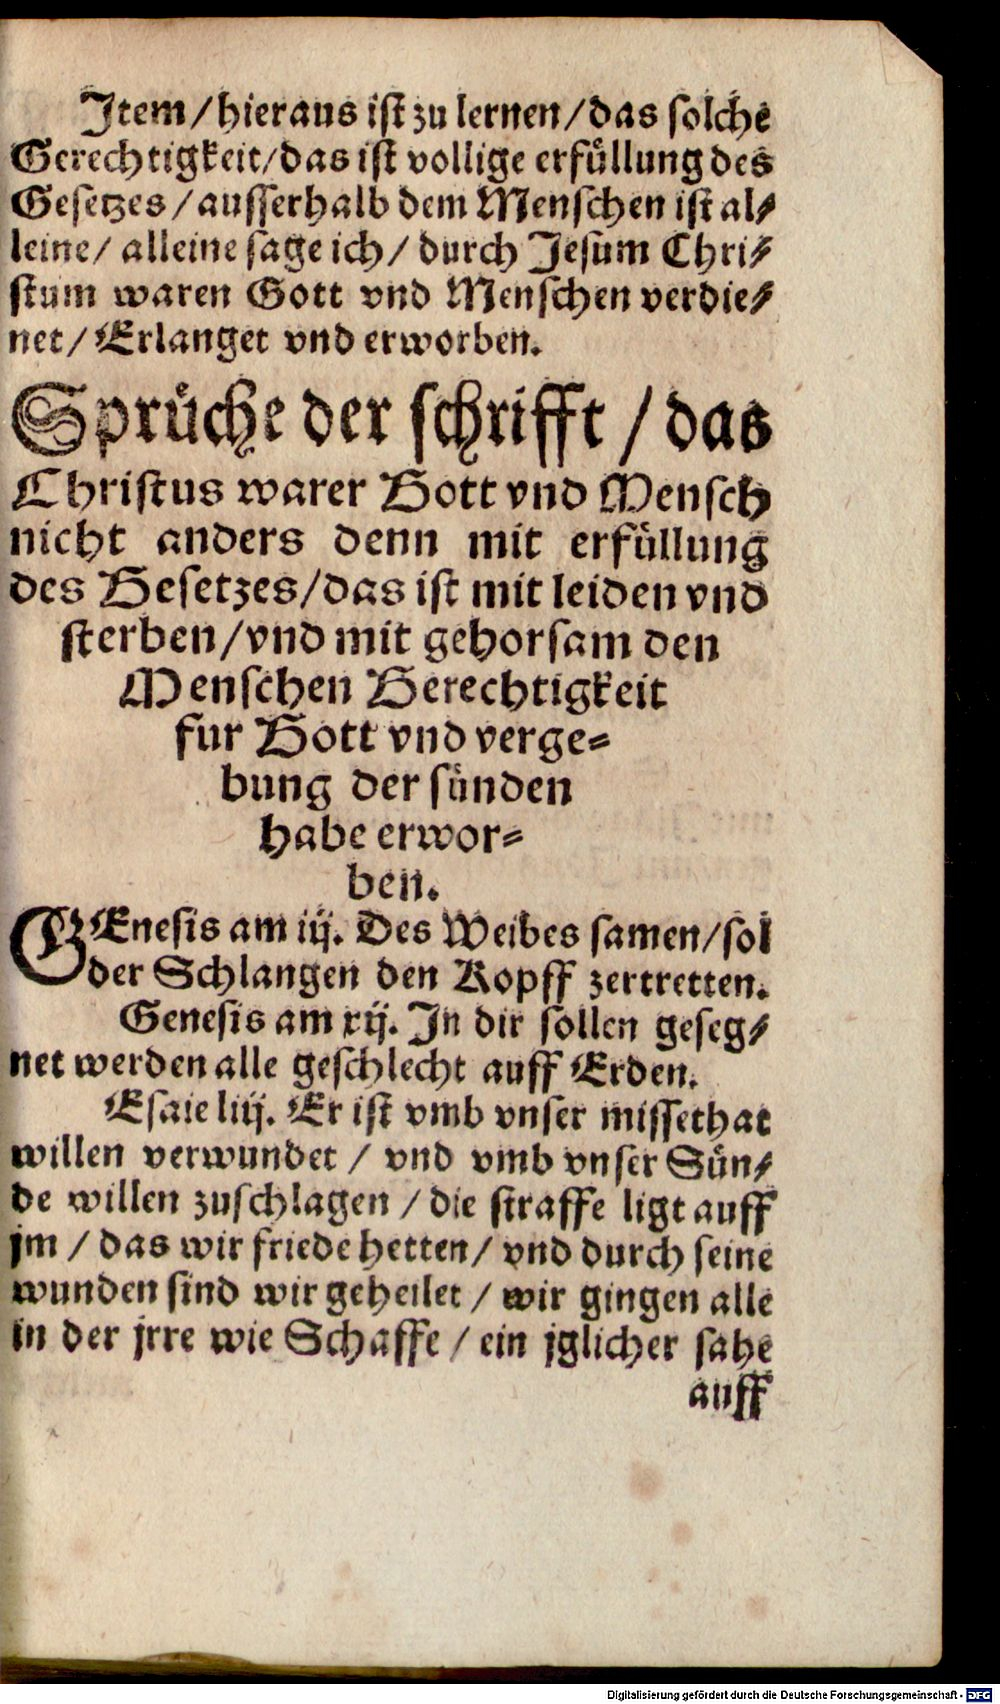 Item / hieraus ist zu lernen / das solche
Gerechtigkeit / das ist vollige erfüllung des
Gesetzes / ausserhalb dem Menschen ist al-
leine / alleine sage ich / durch Jesum Chri-
stum waren Gott vnd Menschen verdie-
net / Erlanget vnd erworben.
Sprüche der schrifft / das
Christus warer Gott vnd Mensch
nicht anders denn mit erfüllung
des Gesetzes / das ist mit leiden vnd
sterben / vnd mit gehorsam den
Menschen Gerechtigkeit
fur Gott vnd verge-
bung der sünden
habe erwor-
ben.
GEnesis am iij. Des Weibes samen / sol
der Schlangen den Kopff zertretten.
Genesis am xij. In dir sollen geseg-
net werden alle geschlecht auff Erden.
Esaie liij. Er ist vmb vnser missethat
willen verwundet / vnd vmb vnser Sün-
de willen zuschlagen / die straffe ligt auff
jm / das wir friede hetten / vnd durch seine
wunden sind wir geheilet / wir gingen alle
in der jrre wie Schaffe / ein jglicher sahe
auff
Digitalisierung gefördert durch die Deutsche Forschungsgemeinschaft - DFG